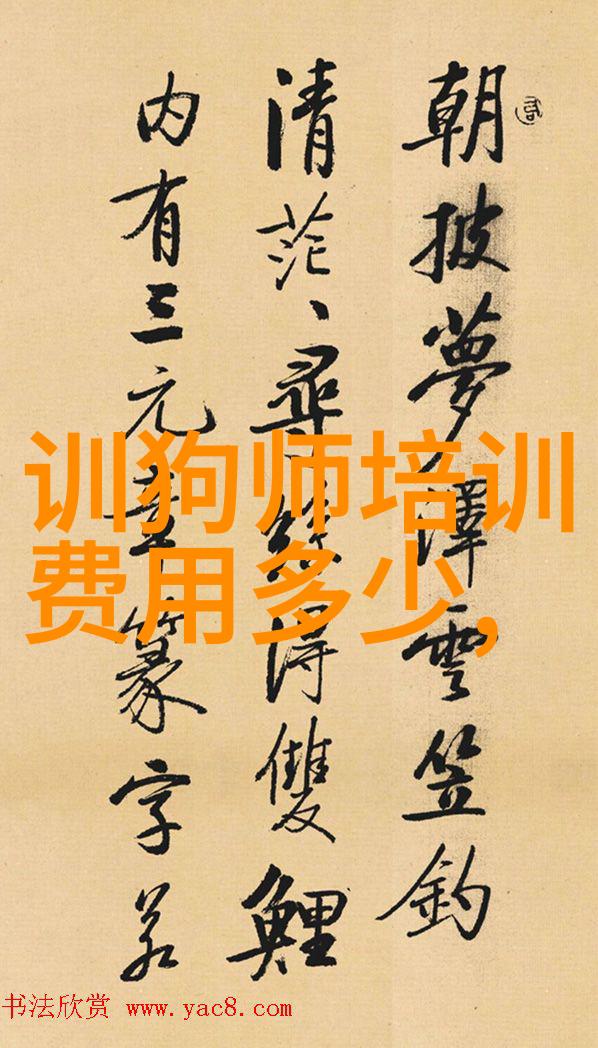 朝披夢澤雲笠釣
清茫、尋絲得雙鯉
内有三元章篆字若
训狗师培训
费用多少,
书法欣赏 www.yac8.com